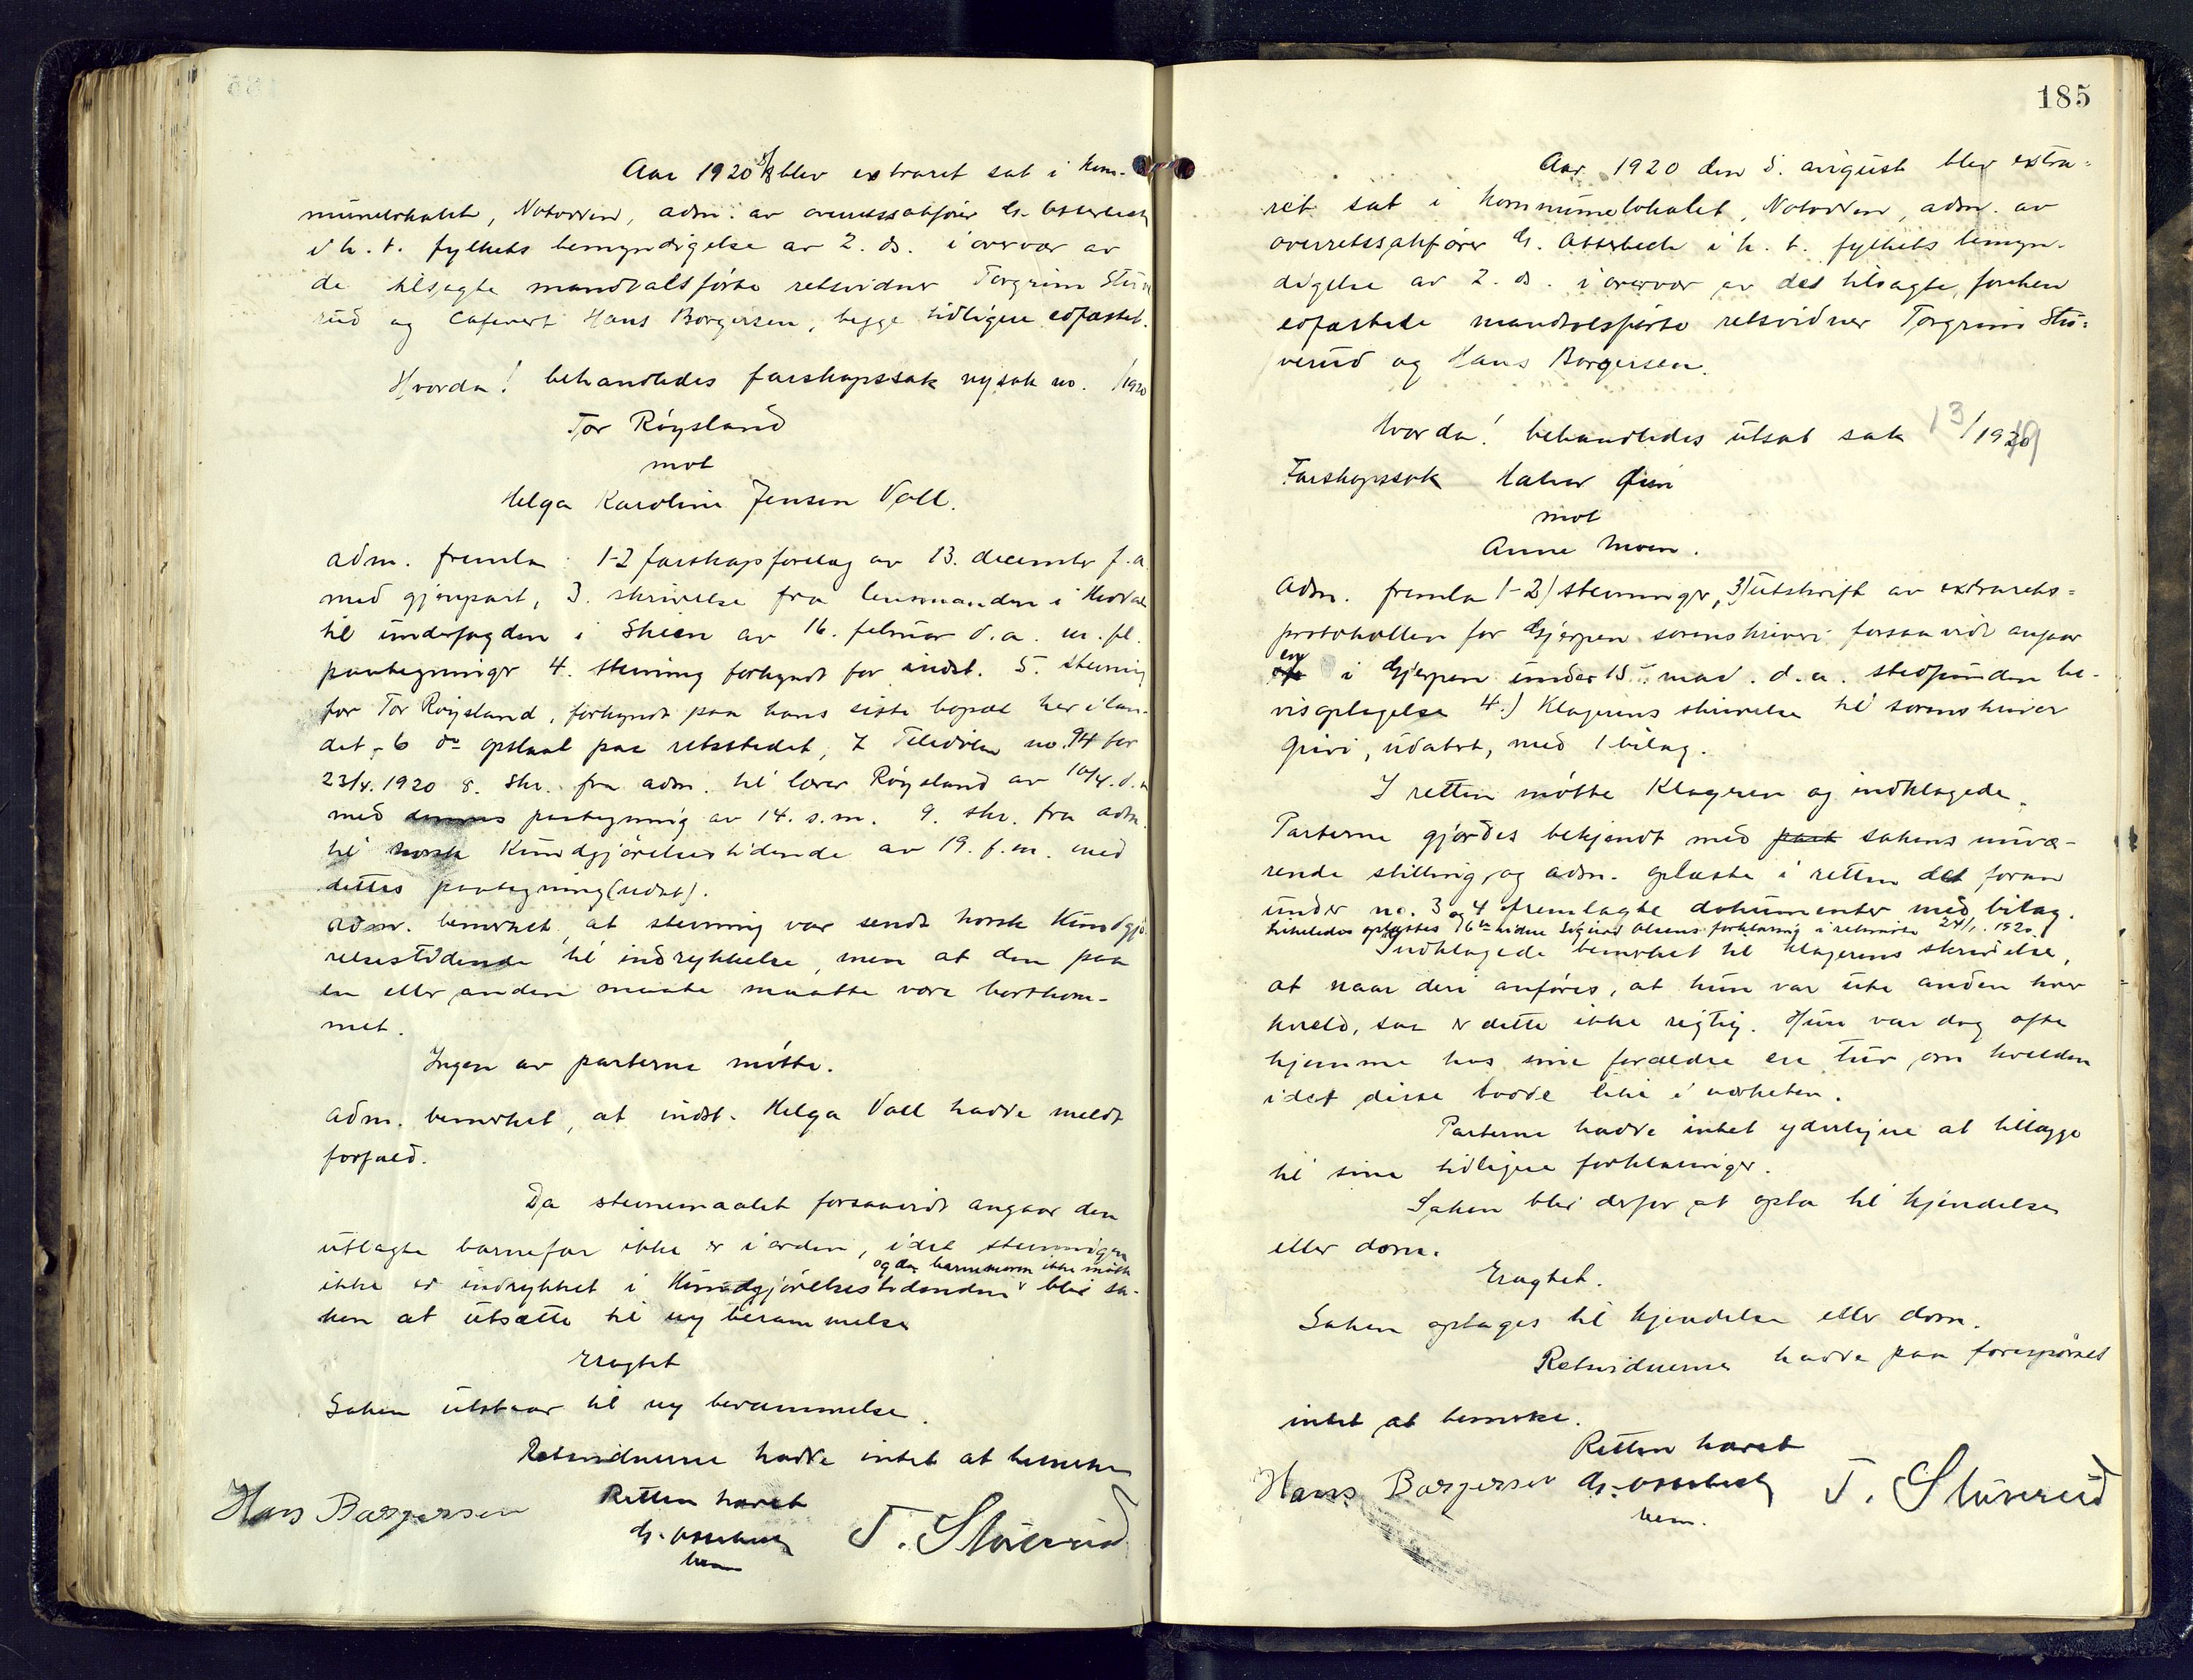 Aar 1920 5/8 blev extraret sat i kom-
munelokalet, Notodden, adm. av overretssakfører G. Asserbech
i h. t. fylkets bemyndigelse av 2. ds. i overvær av
de tilsagte mandtalsførte retsvidner Torgrim Stuve
rud og Cafevert Hans Borgersen, begge tidligere edfæstet.
Hvorda! behandledes farskapssak nysak no. /1920
Tor Røysland
mot
Helga Karoline Jensen Vall.
adm. fremla 1-2 farskapsforelæg av 13. december f.a.
med gjenpart, 3. skrivelse fra lensmanden i Hovin
til underfogden i Skien av 16. februar d.a. m. fl.
paategninger 4. stevning forkyndt for indst. 5. stevning
for Tor Røysland, forkyndt paa hans siste bopæl her i lan-
det, 6 do opslaat paa retsstedet, 7 Teledølen no. 94 for
23/4. 1920 8. skr. fra adm. til lærer Røysland av 10/4. d.a
med dennes paategning av 14. s.m. 9. skr. fra adm.
til norsk Kundgjørelsestidende av 19. f.m. med
dettes paategning (udat).
adm. bemerket, at stevning var sendt norsk Kundgjø
relsestidende til indrykkelse, men at den paa
en eller anden maate maatte være bortkom-
met.
Ingen av parterne møtte.
Adm. bemerket, at indst. Helga Vall hadde meldt
forfald.
Da stevnemaalet forsaavidt angaar den
utlagte barnefar ikke er i orden, idet stevningen
og da barnemoren ikke møtte
ikke er indrykket i Kundgjørelsestidenden blir sa-
ken at utsætte til ny berammelse
Eragtet
Saken utstaar til ny berammelse.
Retsvidnerne hadde intet at bemerke
Retten hævet
Hans Borgersen G. Asserbech T. Stuverud
bem.
185
Aar 1920 den 5. august blev extra-
ret sat i kommunelokalet, Notodden, adm. av
overretssakfører G. Asserbech i h. t. fylkets bemyn-
digelse av 2. ds. i overvær av det tilsagte, forhen
edfæstede mandtalsførte retsvidner Torgrim Stu-
verud og Hans Borgersen.
Hvorda! behandledes utsat sak 13/1919
Farskapssak Halvor Øien
mot
Anne Moen.
Adm. fremla 1-2) stevninger, 3) utskrift av extrarets-
protokollen for Gjerpen sorenskriveri forsaavidt angaar
en i Gjerpen under 15. mai d.a. stedfunden be-
visoptagelse 4.) Klagerens skrivelse til sorenskriver
, udatert, med 1 bilag.
I retten møtte Klageren og indklagede.
Parterne gjordes bekjendt med part sakens nuvæ-
rende stilling, og adm. oplæste i retten det foran
under no. 3 og 4 fremlagte dokumenter med bilag.
Likeledes oplæstes 6te vidne Sigurd Olsens forklaring i retsmøte 24/1. 1920.
Indklagede bemerket til klagerens skrivelse,
at naar deri anføres, at hun var ute anden hver
kveld, saa er dette ikke rigtig. Hun var dog ofte
hjemme hos sine forældre en tur om kvelden
idet disse bodde like i nærheten.
Parterne hadde intet yderligere at tillægge
til sine tidligere forklaringer.
Saken blir derfor at opta til kjendelse
eller dom.
Eragtet.
Saken optages til kjendelse eller dom.
Retsvidnerne hadde paa forespørsel
intet at bemerke.
Retten hævet
Hans Borgersen G. Asserbech T. Stuverud
bem.